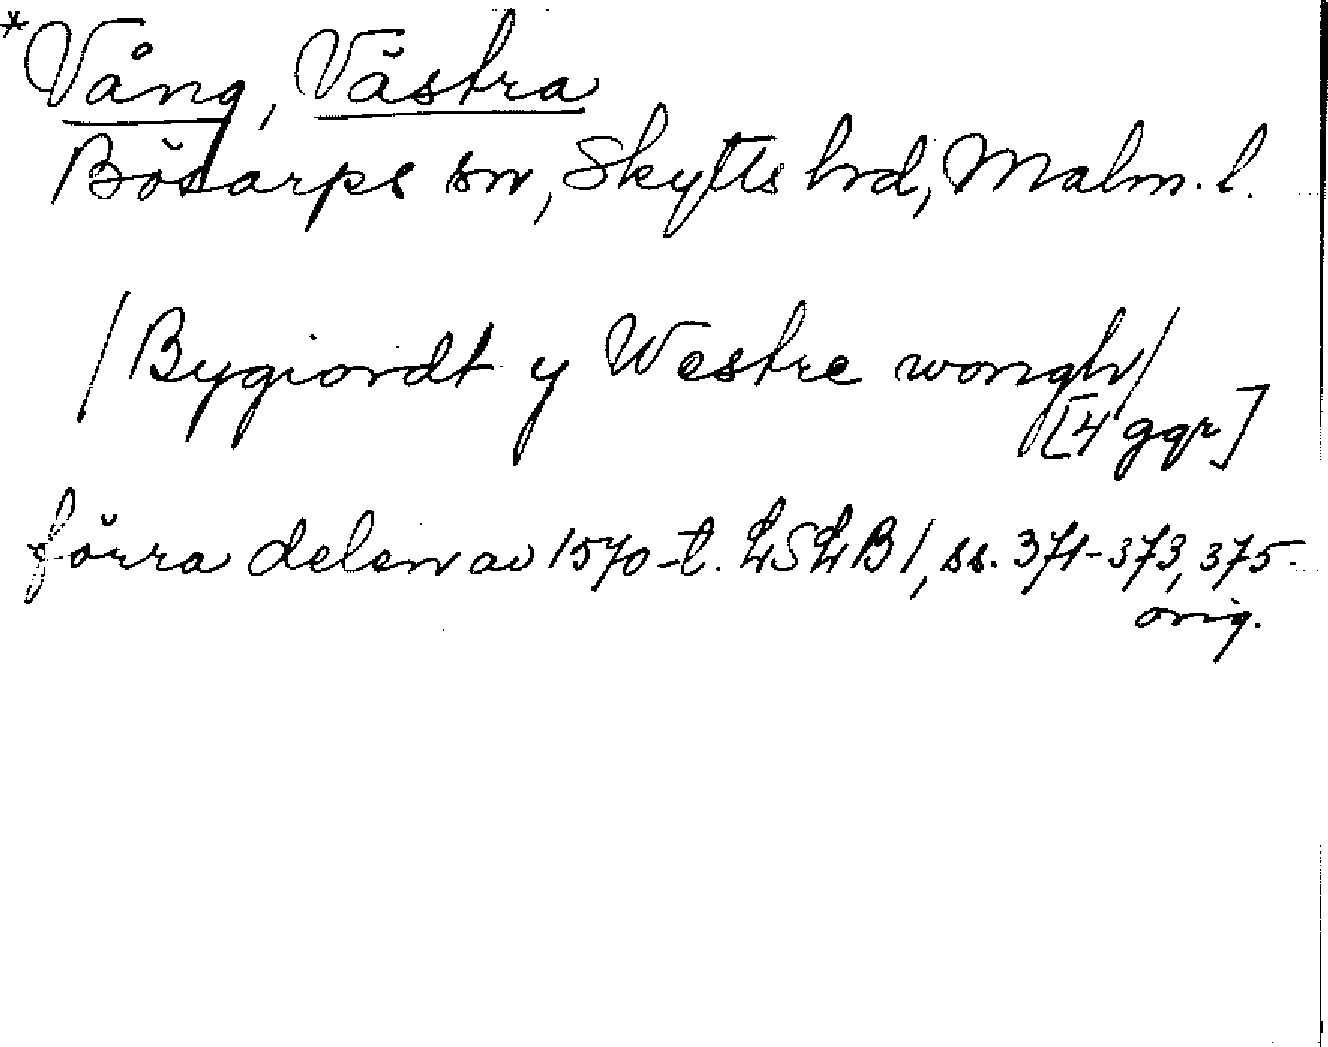 *Vång, Västra
Bösarps sn, Skytts hrd, Malm. l.
/Bygiordt y Westre wongh/
[4 ggr]
förra delen av 1570-t. LSLB 1, ss. 371-373, 375.
orig.